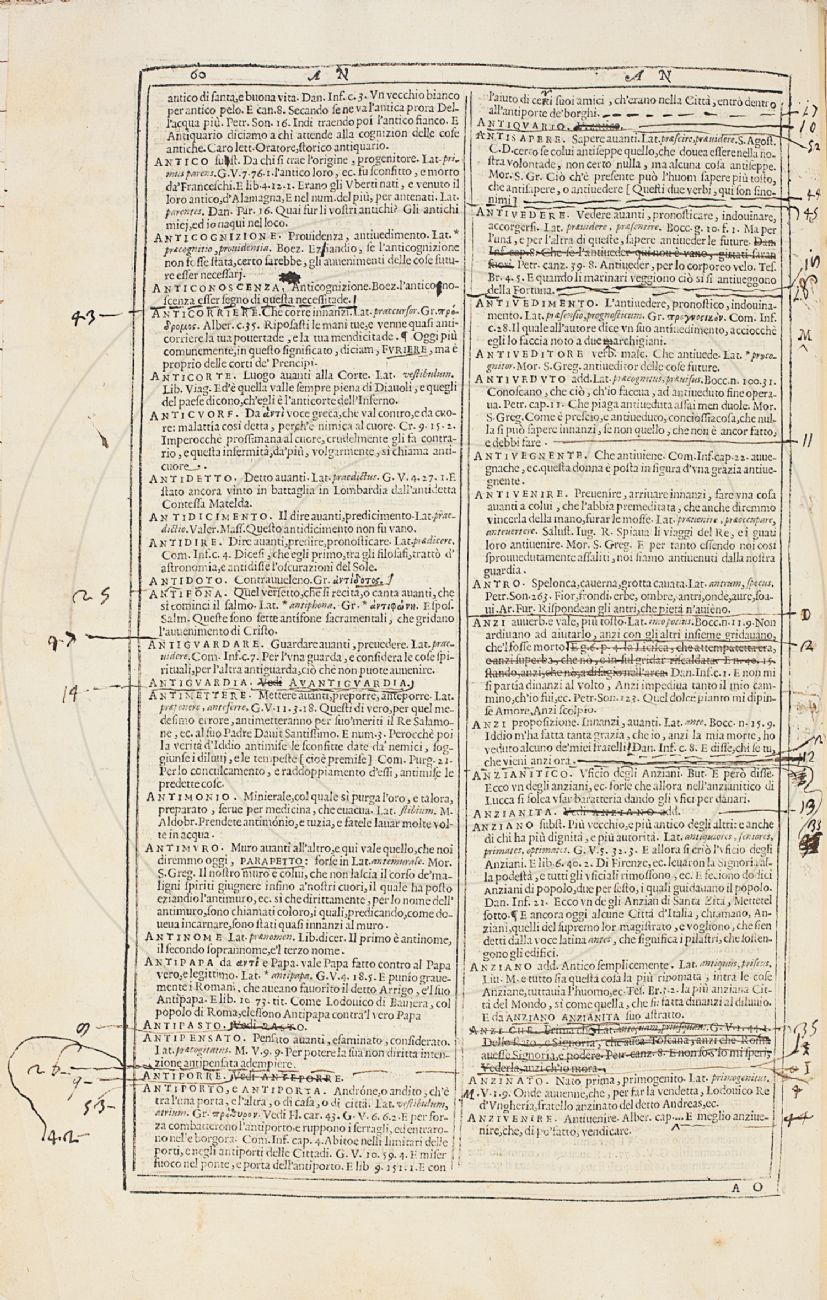 60 A N A N
antico di santa, e buona vita. Dan. Inf. c. 3. Vn vecchio bianco
per antico pelo. E can. 8. Secando se ne va l'antica prora Del-
l'acqua più. Petr. Son. 16. Indi traendo poi l'antico fianco. E
Antiquario diciamo a chi attende alla cognizion delle cose
antiche. Caro lett. Oratore, storico antiquario.
ANTICO sust. Da chi si trae l'origine, progenitore. Lat. pri-
mus parens. G. V. 7. 76. 1. l'antico loro, ec. fu sconfitto, e morto
da' Franceschi. E lib. 4. 12. 1. Erano gli Vberti nati, e venuto il
loro antico, d'Alamagna, E nel num. del più, per antenati. Lat.
parentes. Dan. Pur. 16. Quai fur li vostri antichi? Gli antichi
miei, ed io naqui nel loco.
ANTICOGNIZIONE. Prouidenza, antiuedimento. Lat. *
præcognitio, prouidentia. Boez. Ez andio, se l'anticognizione
non fosse stata, certo sarebbe, gli auuenimenti delle cose futu-
re esser necessarj.
ANTICONOSCENZA, Anticognizione. Boez. l'antico no-
scenza esser segno di questa necessitade.
ANTICORRIERE. Che corre innanzi. Lat. præcursor. Gr. πρό-
δρομος. Alber. c. 35. Riposasti le mani tue, e venne quasi anti-
corriere la tua pouertade, e la tua mendicitade. ¶ Oggi più
comunemente, in questo significato, diciam, FVRIERE, ma è
proprio delle corti de' Prencipi.
ANTICORTE. Luogo auanti alla Corte. Lat. vestibulum.
Lib. Viag. Ed'è quella valle sempre piena di Diauoli, e quegli
del paese dicono, ch'egli è l'anticorte dell'Inferno.
ANTICVORE. Da ἀντί voce greca, che val contro, e da cuo-
re: malattia così detta, perch'è nimica al cuore. Cr. 9. 15. 2.
Imperocchè prossimana al cuore, crudelmente gli fa contra-
rio, e questa infermità, da' più, volgarmente, si chiama anti-
cuore.
ANTIDETTO. Detto auanti. Lat. prædictus. G. V. 4. 27. 1. E
stato ancora vinto in battaglia in Lombardia dall'antidetta
Contessa Matelda.
ANTIDICIMENTO. Il dire auanti, predicimento. Lat. præ-
dictio. Valer. Mass. Questo antidicimento non fu vano.
ANTIDIRE. Dire auanti, predire, pronosticare. Lat. prædicere.
Com. Inf. c. 4. Dicesi, che egli primo, tra gli filosafi, trattò d'
astronomia, e antidisse l'oscurazioni del Sole.
ANTIDOTO. Contrauueleno. Gr. ἀντίδοτος.
ANTIFONA. Quel versetto, che si recita, o canta auanti, che
si cominci il salmo. Lat. * antiphona. Gr. * ἀντιφώνη. Espos.
Salm. Queste sono sette antifone sacramentali, che gridano
l'auuenimento di Cristo.
ANTIGVARDARE. Guardare auanti, preuedere. Lat. præ-
uidere. Com. Inf. c. 7. Per l'vna guarda, e considera le cose spi-
rituali, per l'altra antiguarda, ciò che non puote auuenire.
ANTIGVARDIA. Vedi AVANTIGVARDIA.
ANTIMETTERE. Mettere auanti, preporre, anteporre. Lat.
præponere, anteferre. G. V. 11. 3. 18. Questi di vero, per quel me-
desimo errore, antimetteranno per suo' meriti il Re Salamo-
ne, ec. al suo Padre Dauit Santissimo. E num. 3. Perocchè poi
la verità d'Iddio antimise le sconfitte date da' nemici, sog-
giunse i diluuj, e le tempeste [cioè premise] Com. Purg. 21.
Per lo conculcamento, e raddoppiamento d'essi, antimise le
predette cose.
ANTIMONIO. Minerale, col quale si purga l'oro, e talora,
preparato, serue per medicina, che euacua. Lat. stibium. M.
Aldobr. Prendete antimónio, e tuzia, e fatele lauar molte vol-
te in acqua.
ANTIMVRO. Muro auanti all'altro, e qui vale quello, che noi
diremmo oggi, PARAPETTO: forse in Lat. antemurale. Mor.
S. Greg. Il nostro muro è colui, che non lascia il corso de' ma-
ligni spiriti giugnere infino a' nostri cuori, il quale ha posto
eziandio l'antimuro, ec. si che dirittamente, per lo nome dell'
antimuro, sono chiamati coloro, i quali, predicando, come do-
ueua incarnare, sono stati quasi innanzi al muro.
ANTINOME Lat. prænomen. Lib. dicer. Il primo è antinome,
il secondo soprannome, e'l terzo nome.
ANTIPAPA da ἀντί e Papa. vale Papa fatto contro al Papa
vero, e legittimo. Lat. * antipapa. G. V. 4. 18. 5. E punìo graue-
mente i Romani, che aueano fauorito il detto Arrigo, e'l suo
Antipapa. E lib. 10. 73. tit. Come Lodouico di Bauiera, col
popolo di Roma, elessono Antipapa contra'l vero Papa
ANTIPASTO. Vedi PASTO.
ANTIPENSATO. Pensato auanti, esaminato, considerato.
Lat. præcogitatus. M. V. 9. 9. Per potere la sua non diritta inten-
zione antipensata adempiere.
ANTIPORRE. Vedi ANTEPORRE.
ANTIPORTO, e ANTIPORTA. Andróne, o andito, ch'è
tra l'una porta, e l'altra, o di casa, o di città. Lat. vestibulum,
atrium. Gr. πρόθυρον. Vedi Fl. car. 43. G. V. 6. 6. 2. E per for-
za combatterono l'antiporto e ruppono i serragli, ed entraro-
no nel e borgora. Com. Inf. cap. 4. Abitoe nelli limitari delle
porti, e negli antiporti delle Cittadi. G. V. 10. 59. 4. E miser
fuoco nel ponte, e porta dell'antiporto. E lib. 9. 151. 1. E con
l'aiuto di certi suoi amici, ch'erano nella Città, entrò dentro
all'antiporte de' borghi.
ANTIQVARIO.
ANTISAPERE. Sapere auanti. Lat. præscire, præuidere. S. Agost.
C. D. certo se colui antiseppe quello, che douea essere nella no-
stra volontade, non certo nulla, ma alcuna cosa antiseppe.
Mor. S. Gr. Ciò ch'è presente può l'huom sapere più tosto,
che antisapere, o antiuedere [Questi due verbi, qui son sino-
nimi]
ANTIVEDERE. Vedere auanti, pronosticare, indouinare,
accorgersi. Lat. præuidere, præsentire. Bocc. g. 10. f. 1. Ma per
l'una, e per l'altra di queste, sapere antiueder le future. Dan.
Inf. cap. 8. Che se l'antiueder qui non è vano, guttati saran
fuori. Petr. canz. 39. 8. Antiueder, per lo corporeo velo. Tes.
Br. 4. 5. E quando li marinari veggiono ciò si si antiueggono
della Fortuna.
ANTIVEDIMENTO. L'antiuedere, pronostico, indouina-
mento. Lat. præsensio, prognosticum. Gr. προγνωστικόν. Com. Inf.
c. 28. Il quale all'autore dice vn suo antiuedimento, acciocchè
egli lo faccia noto a due marchigiani.
ANTIVEDITORE verb. masc. Che antiuede. Lat. * præco-
gnitor. Mor. S. Greg. antiueditor delle cose future.
ANTIVEDVTO add. Lat. præcognitus, præuisus. Bocc. n. 100. 31.
Conosceano, che ciò, ch'io faceua, ad antiueduto fine opera-
ua. Petr. cap. 11. Che piaga antiueduta assai men duole. Mor.
S. Greg. Come è prescio, e antiueduto, conciossiacosa, che nul-
la si può sapere innanzi, se non quello, che non è ancor fatto,
e debbi fare.
ANTIVEGNENTE. Che antiuiene. Com. Inf. cap. 22. auue-
gnache, ec. questa donna è posta in figura d'vna grazia antiue-
gnente.
ANTIVENIRE. Preuenire, arriuare innanzi, fare vna cosa
auanti a colui, che l'abbia premeditata, che anche diremmo
vincerla della mano, furar le mosse. Lat. præuenire, præoccupare,
anteuertere. Salust. Iug. R. Spiaua li viaggi del Re, ei guati
loro antiuenire. Mor. S. Greg. E per tanto essendo noi così
sprouuedutamente assaliti, noi siamo antiuenuti dalla nostra
guardia.
ANTRO. Spelonca, cauerna, grotta cauata. Lat. antrum, specus.
Petr. Son. 263. Fior, frondi, erbe, ombre, antri, onde, aure, soa-
ui. Ar. Fur. Rispondean gli antri, che pietà n'auieno.
ANZI auuerb. e vale, più tosto. Lat. imo potius. Bocc. n. 11. 9. Non
ardiuano ad aiutarlo, anzi con gli altri insieme gridauano,
che'l fosse morto. E g. 6. p. 4. la Licisca, che attempatetta era,
o anzi superba, che no, o in sul gridar riscaldata. E n. 40. 15.
stando, anzi, che no, a disagio nell'arca. Dan. Inf. c. 1. E non mi
si partia dinanzi al volto, Anzi impediua tanto il mio cam-
mino, ch'io fui, ec. Petr. Son. 123. Quel dolce pianto mi dipin-
se Amore, Anzi scolpio.
ANZI proposizione. Innanzi, auanti. Lat. ante. Bocc. n. 15. 9.
Iddio m'ha fatta tanta grazia, che io, anzi la mia morte, ho
veduto alcuno de' miei fratelli Dan. Inf. c. 8. E disse, chi se tu,
che vieni anzi ora.
ANZIANITICO. Vficio degli Anziani. But. E però disse.
Ecco vn degli anziani, ec. forse che allora nell'anzianitico di
Lucca si solea vsar baratteria dando gli vfici per danari.
ANZIANITA. Vedi ANZIANO add.
ANZIANO sust. Più vecchio, e più antico degli altri: e anche
di chi ha più dignità, e più autorità. Lat. antiquiores, seniores,
primates, optimates. G. V. 5. 32. 3. E allora si criò l'vficio degli
Anziani. E lib. 6. 40. 2. Di Firenze, ec. leuaron la Signoria al-
la podestà, e tutti gli vficiali rimossono, ec. E feciono dodici
Anziani di popolo, due per sesto, i quali guidauano il popolo.
Dan. Inf. 21. Ecco vn de gli Anzian di Santa Zita, Mettetel
sotto. ¶ E ancora oggi alcune Città d'Italia, chiamano, An-
ziani, quelli del supremo lor magistrato, e vogliono, che sien
detti dalla voce latina antes, che significa i pilastri, che sosten-
gono gli edifici.
ANZIANO add. Antico semplicemente. Lat. antiquus, priscus.
Liu. M. e tutto sia questa cosa la più rinomata, intra le cose
Anziane, tuttauia l'huomo, ec. Tes. Br. 3. 2. la più anziana Cit-
tà del Mondo, si come quella, che fu fatta dinanzi al diluuio.
E da ANZIANO ANZIANITÀ suo astratto.
ANZI CHE. Prima che, Lat. antequam, priusquam. G. V. 1. 43. 2.
Dello stato, e Signoria, che auea Toscana, anzi che Roma
auesse Signoria, e podere. Petr. canz. 8. E non so s'io mi speri
Vederla, anzi ch'io mora.
ANZINATO. Nato prima, primogenito. Lat. primogenitus.
M. V. 1. 9. Onde auuenne, che, per far la vendetta, Lodouico Re
d'Vngheria, fratello anzinato del detto Andreas, ec.
ANZIVENIRE. Antiuenire. Alber. cap.... E meglio anziue-
nire, che, di po' fatto, vendicare.
A O
43
25
97
14
9
26
9
53
42
17
10
52
44
45
M
11
12
13
35
44